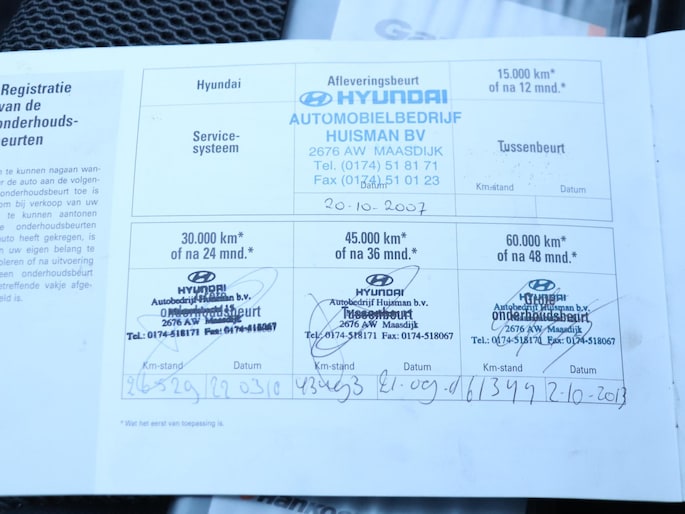 Registratie
van de
onderhouds-
beurten
te kunnen nagaan wan-
de auto aan de volgen-
onderhoudsbeurt toe is
om bij verkoop van uw
te kunnen aantonen
onderhoudsbeurten
auto heeft gekregen, is
uw eigen belang te
of na uitvoering
een onderhoudsbeurt
betreffende vakje afge-
is.
Hyundai
Service-
systeem
Afleveringsbeurt
HYUNDAI
AUTOMOBIELBEDRIJF
HUISMAN BV
2676 AW MAASDIJK
Tel. (0174) 51 81 71
Fax (0174) 51 01 23
Datum
20-10-2007
15.000 km*
of na 12 mnd.*
Tussenbeurt
Km-stand Datum
30.000 km*
of na 24 mnd.*
HYUNDAI
Autobedrijf Huisman b.v.
onderhoudsbeurt
2676 AW Maasdijk
Tel.: 0174-518171 Fax: 0174-518067
Km-stand Datum
26529 22 03 10
45.000 km*
of na 36 mnd.*
HYUNDAI
Autobedrijf Huisman b.v.
Tussenbeurt
2676 AW Maasdijk
Tel.: 0174-518171 Fax: 0174-518067
Km-stand Datum
21-09-
60.000 km*
of na 48 mnd.*
HYUNDAI
Grote
Autobedrijf Huisman b.v.
onderhoudsbeurt
2676 AW Maasdijk
Tel.: 0174-518171 Fax: 0174-518067
Km-stand Datum
61344 2-10-2013
* Wat het eerst van toepassing is.